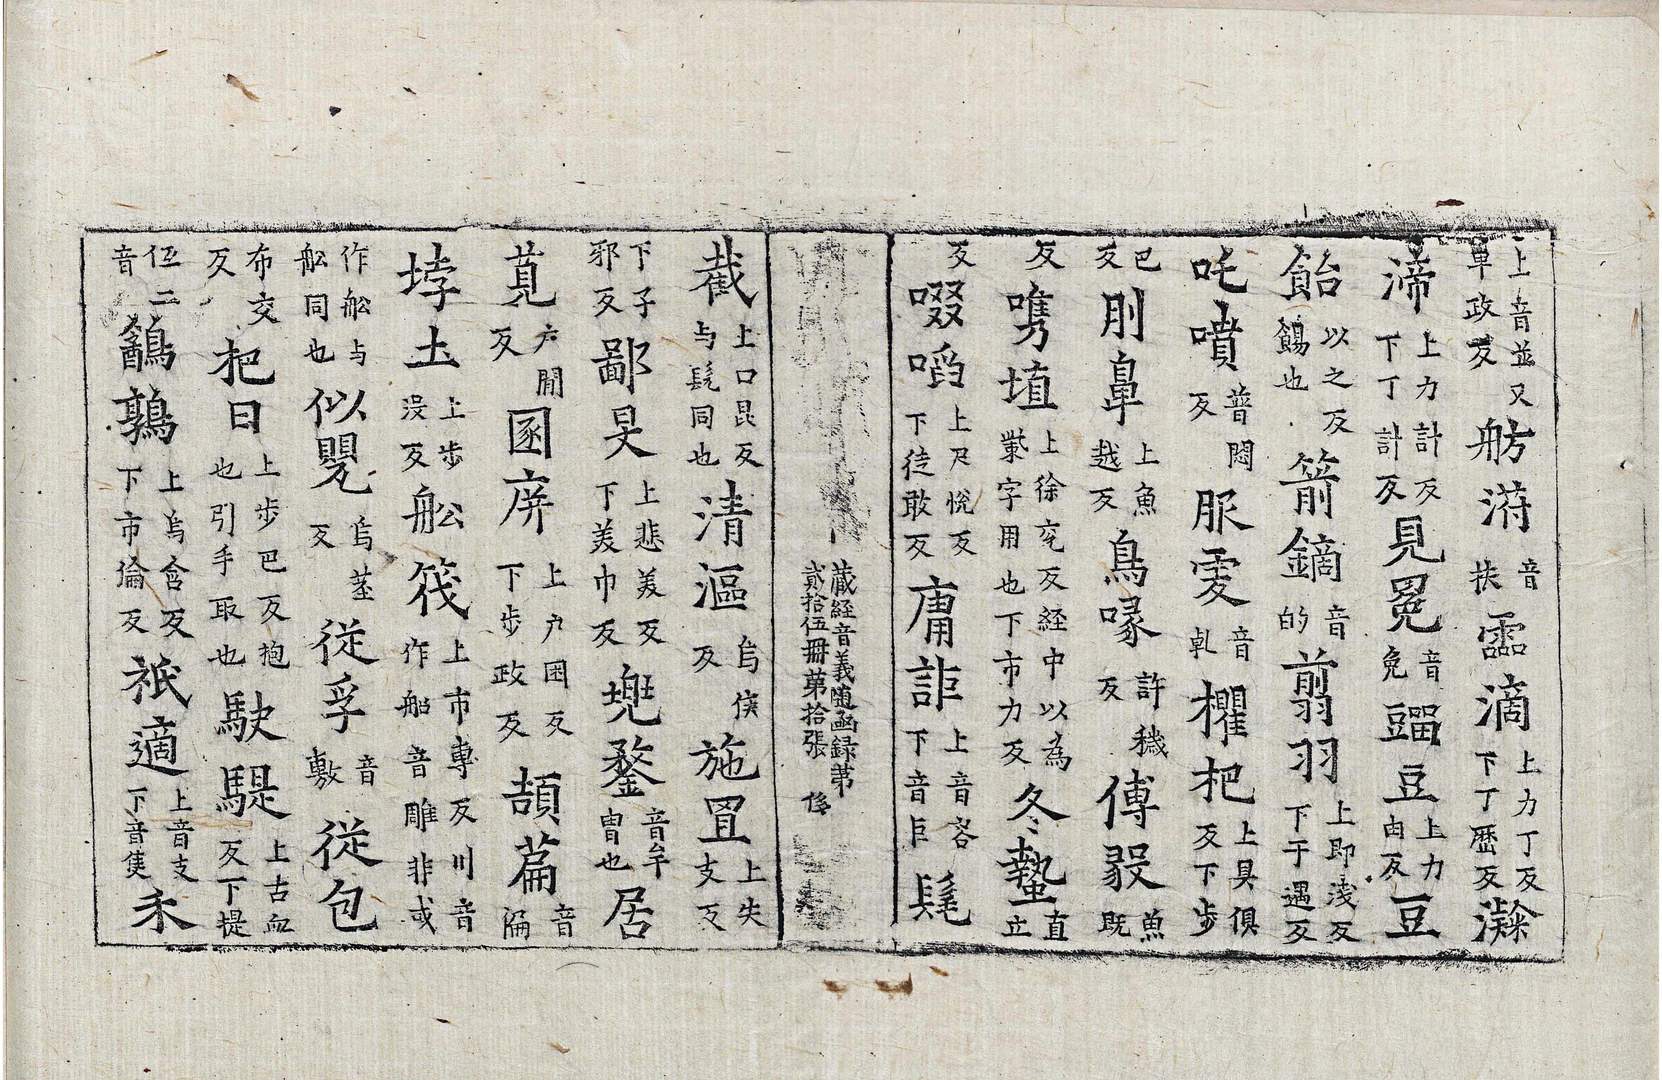 上音並又單政反舫㳺音扶霝滴上力丁反下丁歷反瀿
渧上力計反下丁計反見冕音免䝀豆上力由反豆
飴以之反餳也箭鏑音的翦羽上即淺反下于遇反
吒噴普悶反服雯音軋欋杷上具俱反下步
巴反刖鼻上魚越反鳥喙許穢反傅毅魚既
反㗾埴上徐兖反経中以為㽃字用也下市力反冬蟄直立
反啜啗上尺悅反下徒敢反庸詎上音容下音巨髡
藏経音義随函録苐
貳拾伍冊苐拾張 㑹
截上口昆反与髡同也清漚烏侯反施罝上失支反
下子邪反鄙旻上悲美反下美巾反兠鍪音牟冑也居
莧戶閒反圂庰上戶困反下步政反頡萹音
㘸土上步没反舩筏上市專反川音作船音雕非或
作舩与舩同也似甖烏莖反従孚音敷従包
布交反杷曰上步巴反抱也引手取也駃騠上古血反下提
伍二音鷂鶉上烏含反下市倫反祇適上音支下音隻禾